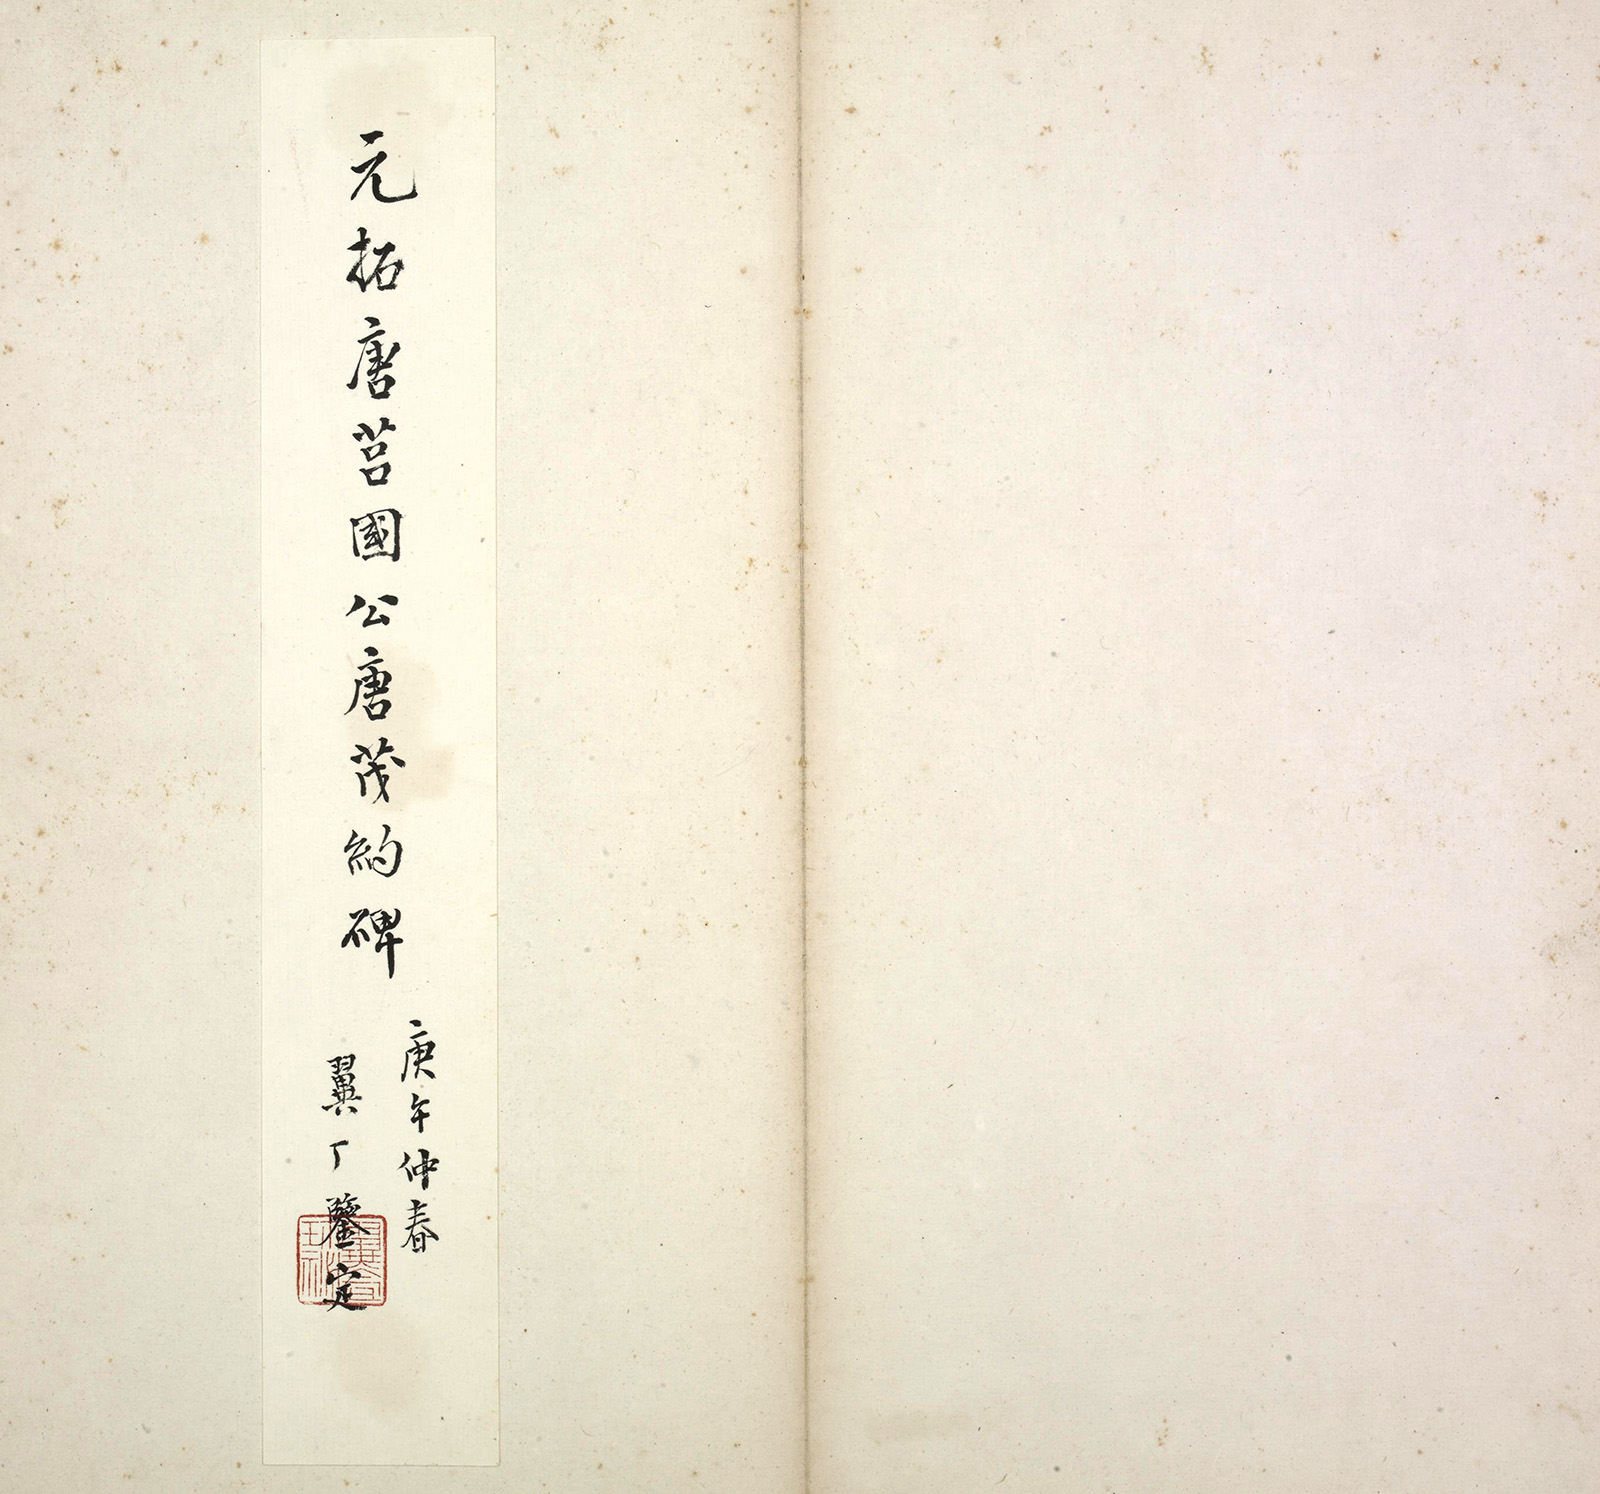 元拓唐莒國公唐茂約碑
庚午仲春
翼丁鑒定